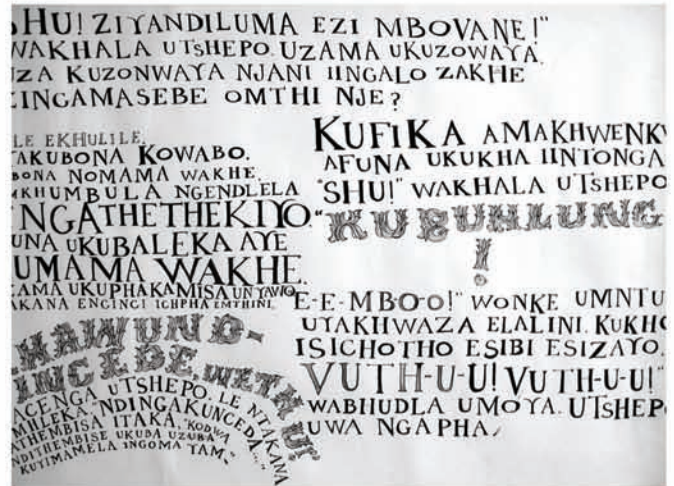 SHU! ZIYANDILUMA EZI MBOVANE!"
WAKHALA UTSHEPO. UZAMA UKUZOWAYA.
UZA KUZONWAYA NJANI IINGALO ZAKHE
ZINGAMASEBE OMTHI NJE?
LE EKHULILE.
AKUBONA KOWABO.
BONA NOMAMA WAKHE.
KHUMBULA NGENDLELA
NGATHETHEKIYO.
UNA UKUBALEKA AYE
UMAMA WAKHE.
ZAMA UKUPHAKAMISA UNYAWO,
AKANA ENGINGI ICHPHA EMTHINI.
"HAWUND-
INCEDE WETHU!"
ACENGA UTSHEPO. LE NTAKANA
MHLEKA. "NDINGAKUNCEDA..."
ATHEMBISA ITAKA, "KODWA
NDITHEMBISE UKUBA UZUBA
KUTIMAMELA INGOMA YAM."
KUFIKA AMAKHWENKW
AFUNA UKUKHA IINTONGA
"SHU!" WAKHALA UTSHEPO
"KUBUHLUNG
!
"E-E-MBO-O!" WONKE UMNTU
UYAKHWAZA ELALINI. KUKHO
ISICHOTHO ESIBI ESIZAYO.
VUTH-U-U! VUTH-U-U!"
WABHUDLA UMOYA. UTSHEP
UWA NGAPHA,